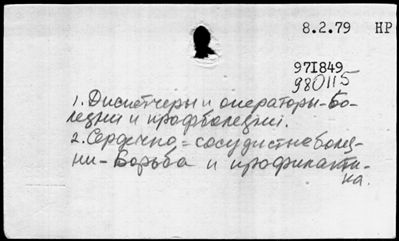 8.2.79 НР
97I849
980115
1. Диспетчеры и операторы-Бо-
лезни и профболезни.
2. Сердечно=сосудистые болез-
ни-Борьба и профилакти-
ка.